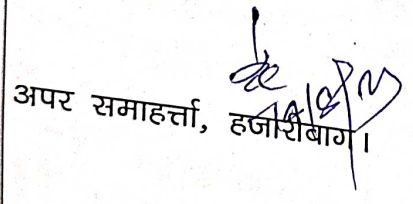 अपर समाहर्त्ता, हजारीबाग।